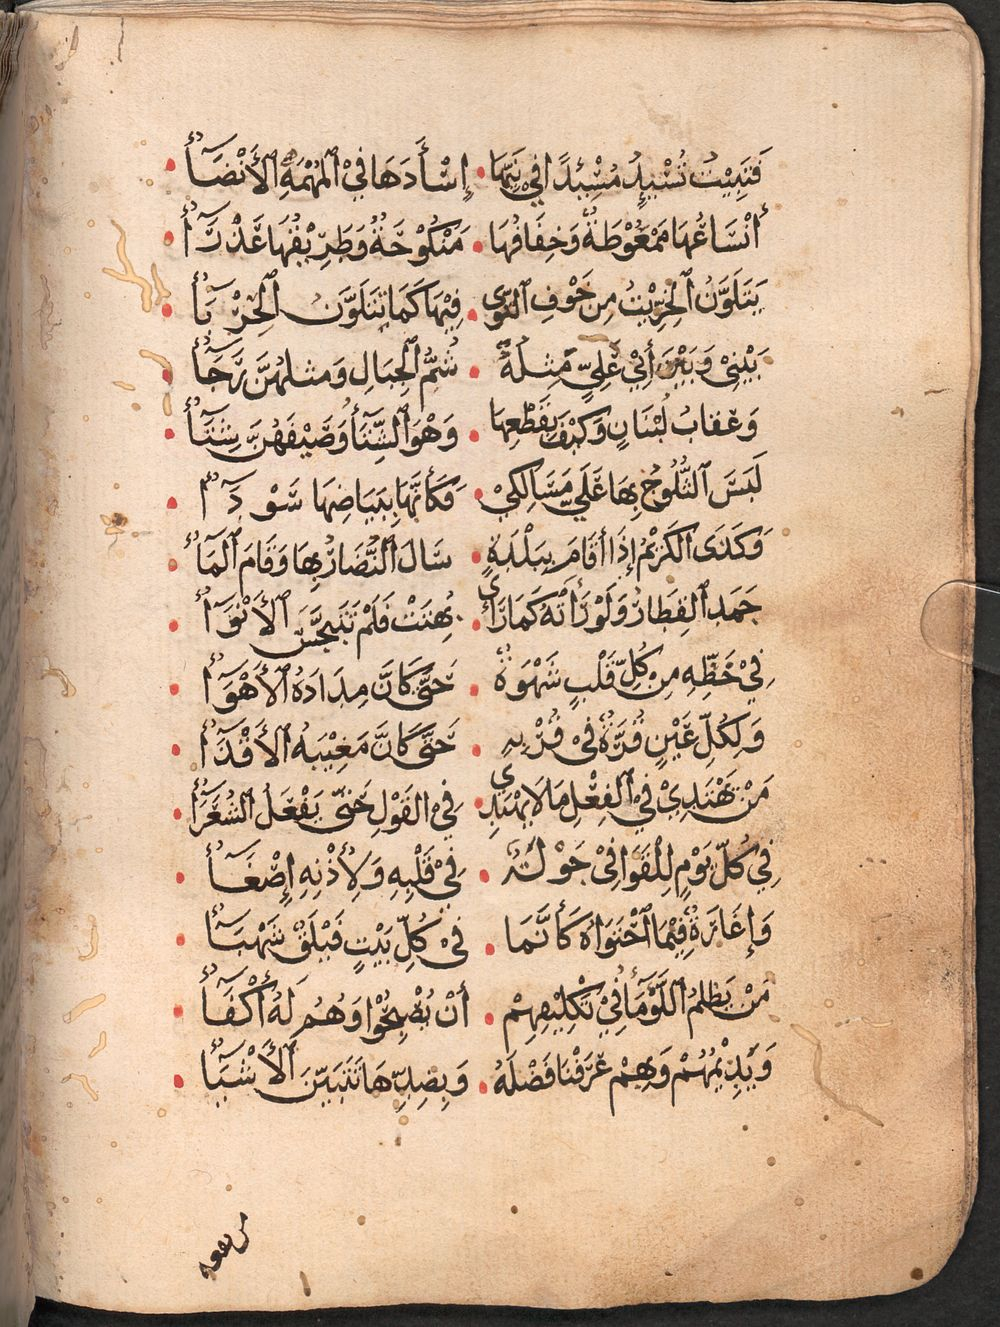 فَتَبِيتُ تُسْئِدُ مُسْئِدًا فِي نَيِّهَا • إِسْأَدَهَا فِي الْمَهْمَهِ الْأَنْضَآءُ
أَنْسَاعُهَا مَمْغُوطَةٌ وَخِفَافُهَا • مَنْكُوحَةٌ وَطَرِيقُهَا عَذْرَآءُ
يَتَلَوَّنُ الْخِرِّيتُ مِن خَوْفِ التَّوَى • فِيهَا كَمَا تَتَلَوَّنُ الْحِرْبَآءُ
بَيْنِي وَبَيْنَ أَبِي عَلِيٍّ مِثْلَهُ • شُمُّ الْجِبَالِ وَمِثلُهُنَّ رَجَآءُ
وَعِقَابُ لُبْنَانٍ وَكَيْفَ بِقَطْعِهَا • وَهْوَ الشِّتَآءُ وَصَيْفُهُنَّ شِتَآءُ
لَبَسَ الثُّلُوجُ بِهَا عَلَيَّ مَسَالِكِي • فَكَأَنَّهَا بِبَيَاضِهَا سَوْدَآءُ
وَكَذَى الْكَرِيمُ إِذَا أَقَامَ بِبَلْدَةٍ • سَالَ النُّضَارُ بِهَا وَقَامَ الْمَآءُ
جَمَدَ الْقِطَارُ وَلَوْ رَأَتْهُ كَمَا رَأَى • بُهِتَتْ فَلَمْ تَتَبَجَّسِ الْأَنْوَآءُ
فِي خَطِّهِ مِن كُلِّ قَلْبٍ شَهْوَةٌ • حَتَّى كَأَنَّ مِدَادَهُ الْأَهْوَآءُ
وَلِكُلِّ عَيْنٍ قُرَّةٌ فِي قُرْبِهِ • حَتَّى كَأَنَّ مَغِيبَهُ الْأَقْذَآءُ
مَنْ يَهْتَدِي فِي الْفِعْلِ مَا لَا يَهْتَدِي • فِي الْقَوْلِ حَتَّى يَفْعَلَ الشُّعَرَآءُ
فِي كُلِّ يَوْمٍ لِلْقَوَافِي جَوْلَةٌ • فِي قَلْبِهِ وَلِأُذْنِهِ إِصْغَآءُ
وَإِغَارَةٌ فِيمَا احْتَوَاهُ كَأَنَّمَا • فِي كُلِّ بَيْتٍ فَيْلَقٌ شَهْبَآءُ
مَنْ يَظْلِمُ اللُّؤَمَآءَ فِي تَكْلِيفِهِمْ • أَنْ يُصْبِحُوا وَهُمُ لَهُ أَكْفَآءُ
وَيَذِيمُهُمْ وَبِهِمْ عَرَفْنَا فَضْلَهُ • وَبِضِدِّهَا تَتَبَيَّنُ الْأَشْيَآءُ
من نفعه